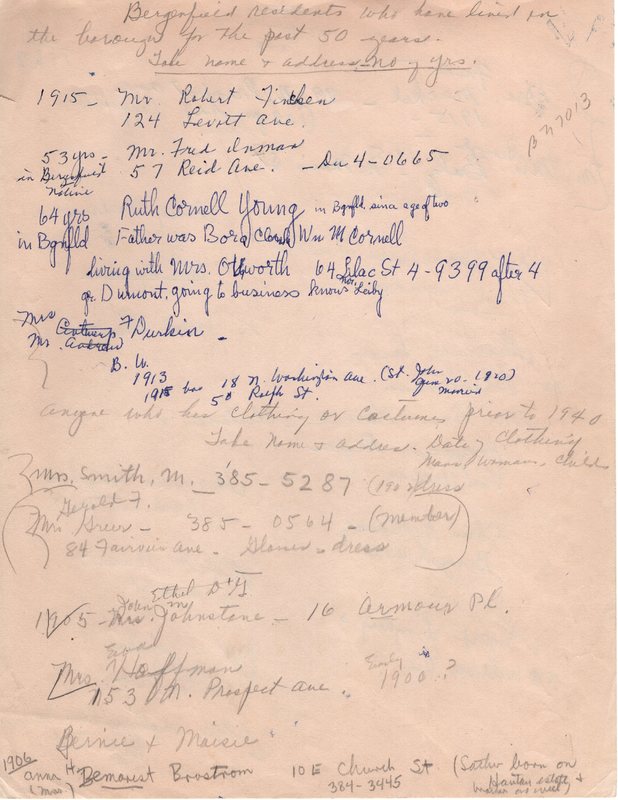 Bergenfield residents who have lived in
the borough for the past 50 years.
Take name & address - no of yrs.
B 77013
1915 - Mr. Robert
124 Levitt Ave.
53 yrs - Mr. Fred Inman
in Bergenfield 57 Reid Ave. - Du 4-0665
Native
64 yrs Ruth Cornell Young in Bgnfld. since age of two
in Bgnfld Father was Boro Clerk Wm M Cornell
living with Mrs. 64 Lilac St 4-9399 after 4
Dumont, going to business knows Mr Leiby
Mrs F Durkin
Mr.
B. W.
1913 18 N. Washington Ave. (St. John
1915 50 Ralph St. June 20-1920)
married
Anyone who has clothing or costumes prior to 1940
Take name & address. Date of Clothing
Mans, Womans, Childs
Mrs. Smith, M. - 385-5287 (1902) dress
Gerald F.
Mrs Greer - 385-0564 - (member)
84 Fairview Ave. - - dress
Ethel D + F.
John M
1905 - Mrs. Johnstone - 16 Armour Pl.
Mrs. Hoffman Emily is
153 N. Prospect Ave. 1900..?
Bernie & Maisie
1906
Anna H Demarest Brostrom 10 E Church St (Father born on
(Mrs) 384-3445 estate &